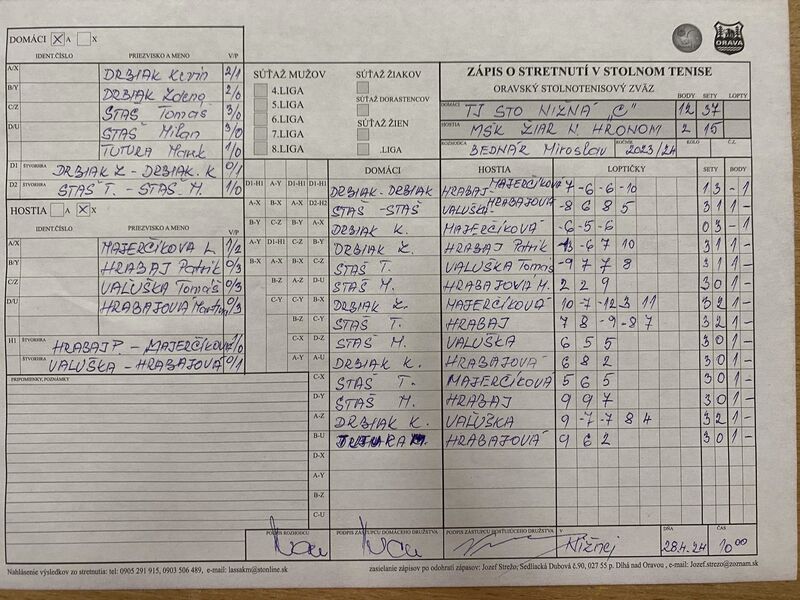 DOMÁCI X A X
IDENT.ČÍSLO PRIEZVISKO A MENO V/P
A/X DRBIAK Kevin 2/1
B/Y DRBIAK Zdeno 2/0
C/Z STAŠ Tomáš 3/0
D/U STAŠ Milan 3/0
TUTURA Marek 1/0
D1 ŠTVORHRA DRBIAK Z - DRBIAK. K 0/1
D2 ŠTVORHRA STAŠ T. - STAŠ M. 1/0
HOSTIA A X X
IDENT.ČÍSLO PRIEZVISKO A MENO V/P
A/X MAJERČÍKOVA L 1/2
B/Y HRABAJ Patrik 0/3
C/Z VALUŠKA Tomáš 0/3
D/U HRABAJOVÁ Martina 0/3
H1 ŠTVORHRA HRABAJ P. - MAJERČÍKOVÁ 1/0
ŠTVORHRA VALUŠKA - HRABAJOVÁ 0/1
PRIPOMIENKY, POZNÁMKY
SÚŤAŽ MUŽOV
4.LIGA
5.LIGA
6.LIGA
7.LIGA
8.LIGA
SÚŤAŽ ŽIAKOV
SÚŤAŽ DORASTENCOV
SÚŤAŽ ŽIEN
.LIGA
ORAVA
ZÁPIS O STRETNUTÍ V STOLNOM TENISE
ORAVSKÝ STOLNOTENISOVÝ ZVÄZ
BODY SETY LOPTY
DOMÁCI TJ STO NIŽNÁ "C" 12 37
HOSTIA MŠK ŽIAR N. HRONOM 2 15
ROZHODCA BEDNÁR Miroslav ROČNÍK 2023/24 KOLO Č.Z.
DOMÁCI HOSTIA LOPTIČKY SETY BODY
D1-H1 A-Y D1-H1 D1-H1 DRBIAK - DRBIAK HRABAJ MAJERČÍKOVÁ 7 -6 -6 -10 1 3 - 1
A-X B-X A-X D2-H2 STAŠ - STAŠ VALUŠKA - HRABAJOVÁ -8 6 8 5 3 1 1 -
B-Y C-Z B-Y A-X DRBIAK K. MAJERČÍKOVÁ -6 -5 -6 0 3 - 1
A-Y D1-H1 C-Z B-Y DRBIAK Z. HRABAJ Patrik -6 7 10 3 1 1 -
B-X A-X A-Y C-Z STAŠ T. VALUŠKA Tomáš -9 7 7 8 3 1 1 -
B-Z A-Z D-U STAŠ M. HRABAJOVÁ M. 2 2 9 3 0 1 -
C-Y C-Y B-X DRBIAK Z. MAJERČÍKOVÁ 10 -7 -12 3 11 3 2 1 -
B-Z C-Y STAŠ T. HRABAJ 7 8 -9 -8 7 3 2 1 -
C-X D-Z STAŠ M. VALUŠKA 6 5 5 3 0 1 -
A-Y A-U DRBIAK K. HRABAJOVÁ 6 8 2 3 0 1 -
C-X STAŠ T. MAJERČÍKOVÁ 5 6 5 3 0 1 -
D-Y STAŠ M. HRABAJ 9 9 7 3 0 1 -
A-Z DRBIAK K. VALUŠKA 9 -7 -7 8 4 3 2 1 -
B-U TUTURA M. HRABAJOVÁ 9 6 2 3 0 1 -
D-X
A-Y
B-Z
C-U
PODPIS ROZHODCU PODPIS ZÁSTUPCU DOMÁCEHO DRUŽSTVA PODPIS ZÁSTUPCU HOSŤUJÚCEHO DRUŽSTVA V Nižnej DŇA 28.4.24 ČAS 10 00
Nahlásenie výsledkov zo stretnutia: tel: 0905 291 915, 0903 506 489, e-mail: lassakm@stonline.sk
zasielanie zápisov po odohratí zápasov: Jozef Strežo, Sedliacká Dubová č.90, 027 55 p. Dlhá nad Oravou , e-mail: Jozef.strezo@zoznam.sk